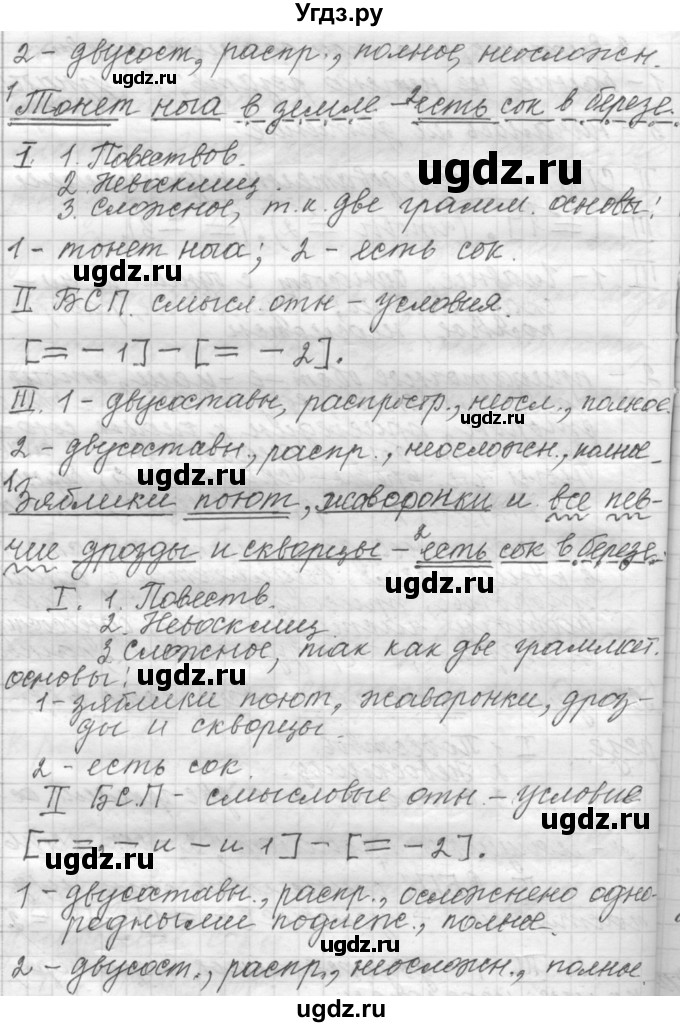 Угдз.ру
2 - двусост, распр., полное, неосложн.
ugdz.ru
1 Тонет нога в земле - 2 есть сок в березе.
I. 1. Повествов.
ugdz.ru
2. Невосклиц.
3. Сложное, т.к. две грамм. основы:
1 - тонет нога; 2 - есть сок.
ugdz.ru
II БСП. смысл. отн - условия.
ugdz.ru
[= - 1] - [= - 2].
III. 1 - двусоставн, распростр., неосл., полное.
2 - двусоставн., распр., неосложн., полное
ugdz.ru
1. Зяблики поют, жаворонки и все пев-
чие дрозды и скворцы - 2 есть сок в березе.
ugdz.ru
I. 1. Повеств.
2. Невосклиц
3 Сложное, так как две граммат.
основы:
1 - зяблики поют, жаворонки, дроз-
ды и скворцы.
ugdz.ru
2 - есть сок.
II БСП - смысловые отн. - условие
ugdz.ru
[- =, - и - и 1] - [= - 2].
ugdz.ru
1 - двусоставн., распр., осложнено одно-
родными подлеж., полное.
ugdz.ru
2 - двусост., распр., неосложн., полное.
ugdz.ru